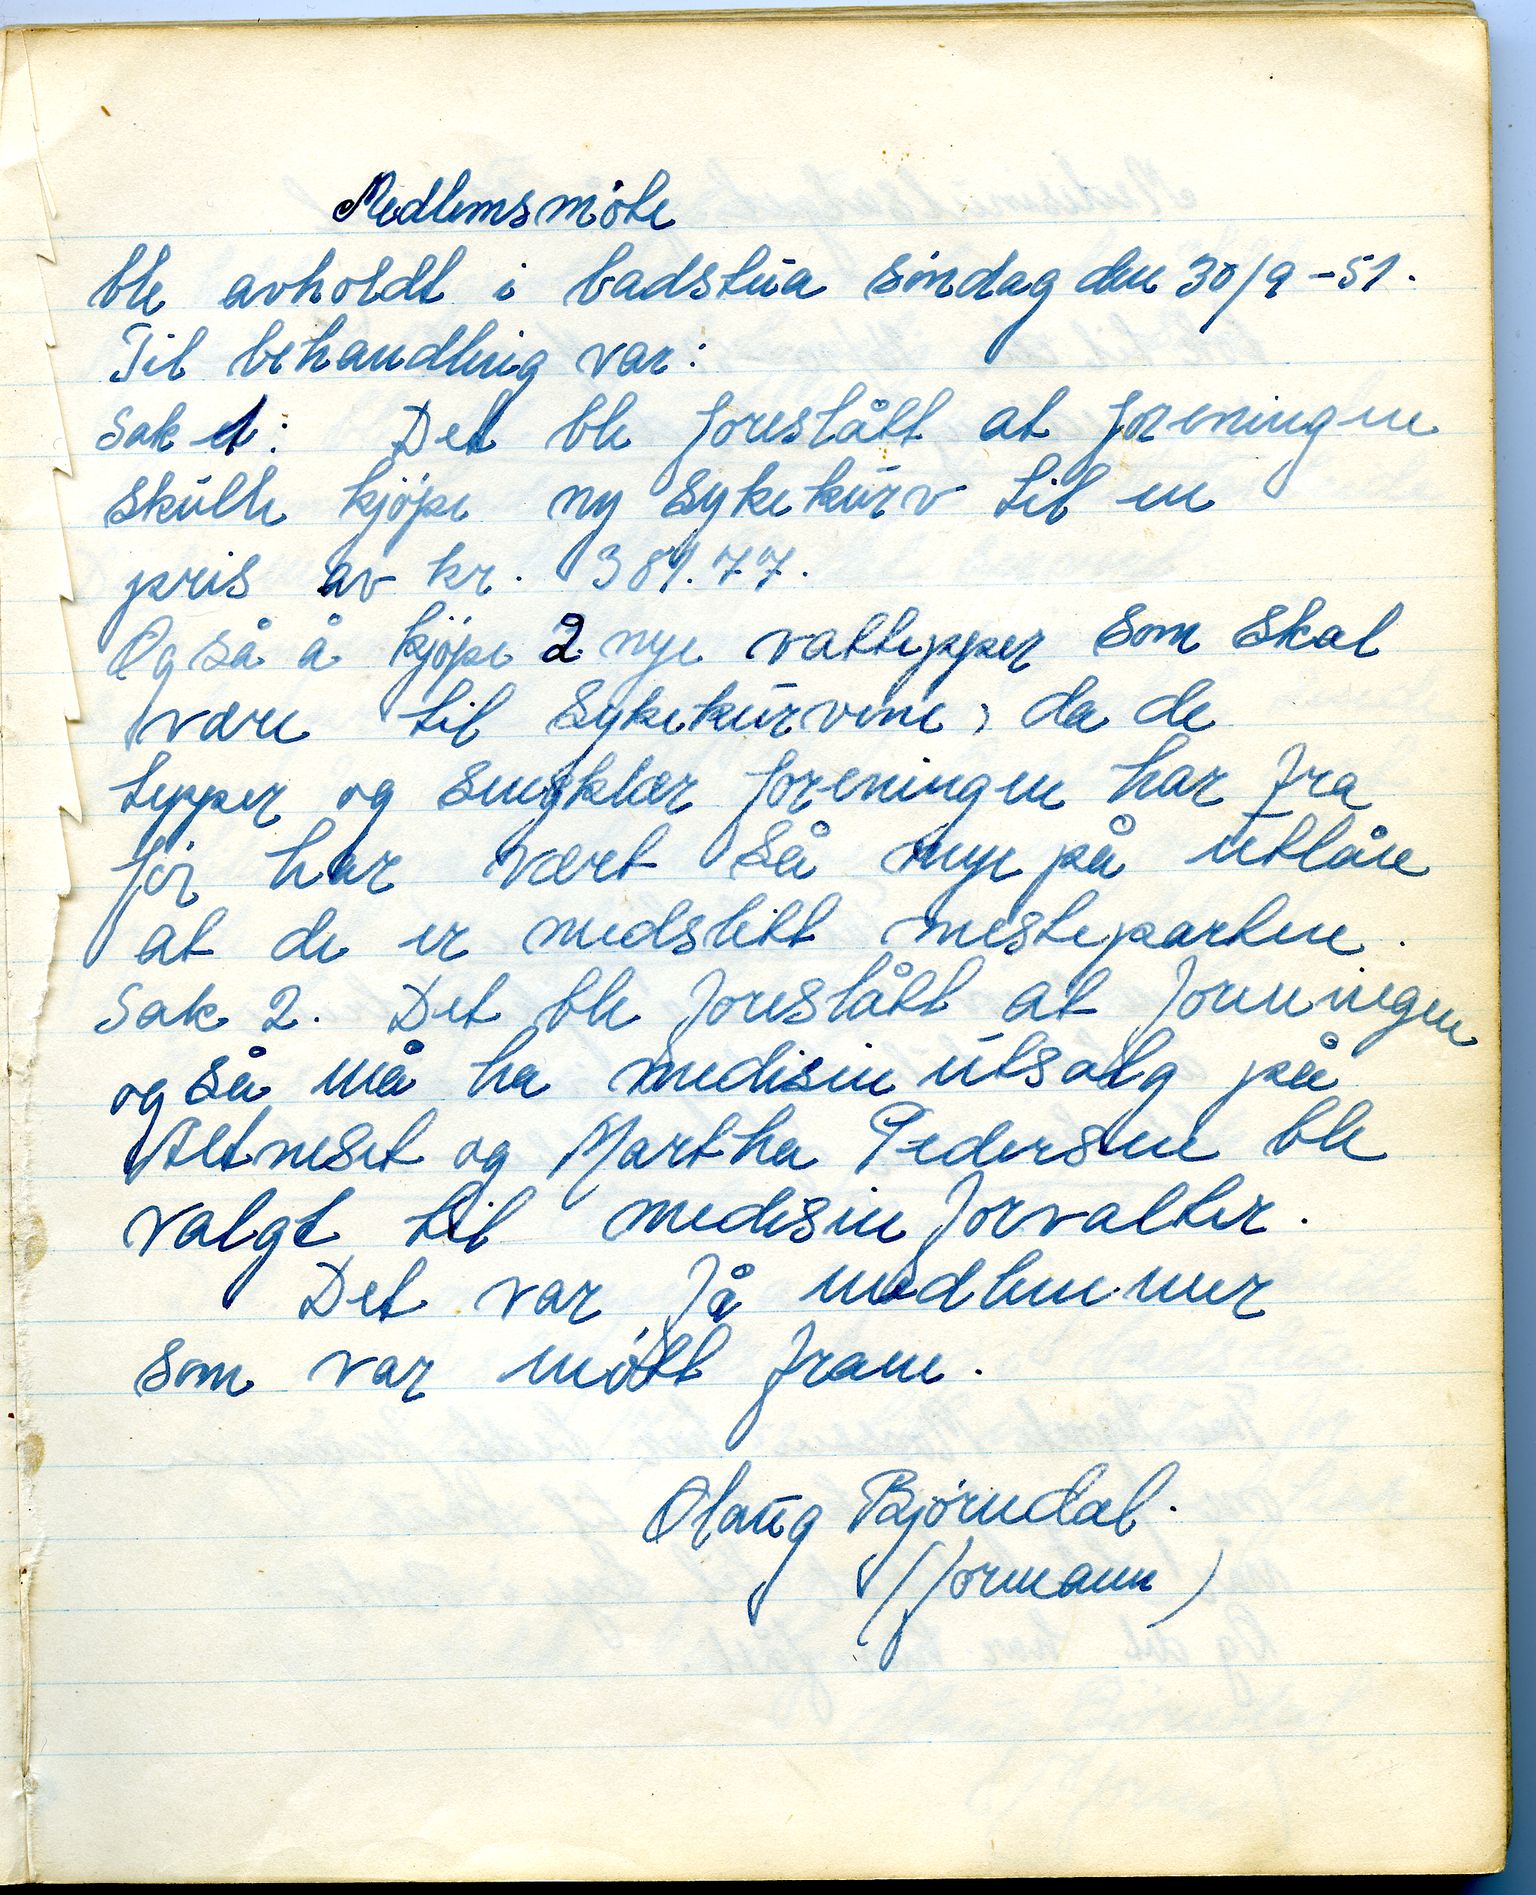 Medlemsmöte
ble avholdt i badstua söndag den 30/9-51.
Til behandling var:
Sak 1: Det ble foreslått at foreningen
skulle kjöpe ny sykekurv til en
pris av kr. 381.77.
Også å kjöpe 2 nye vattepper som skal
være til sykekurvene, da de
tepper og sengklær foreningen har fra
för har vært så mye på utlån
at de er nedslitt mesteparten.
Sak 2. Det ble foreslått at foreningen
også må ha medisinutsalg på
Altneset og Martha Pedersen ble
valgt til medisinforvalter.
Det var få medlemmer
som var mött fram.
Olaug Björndal.
(formann)